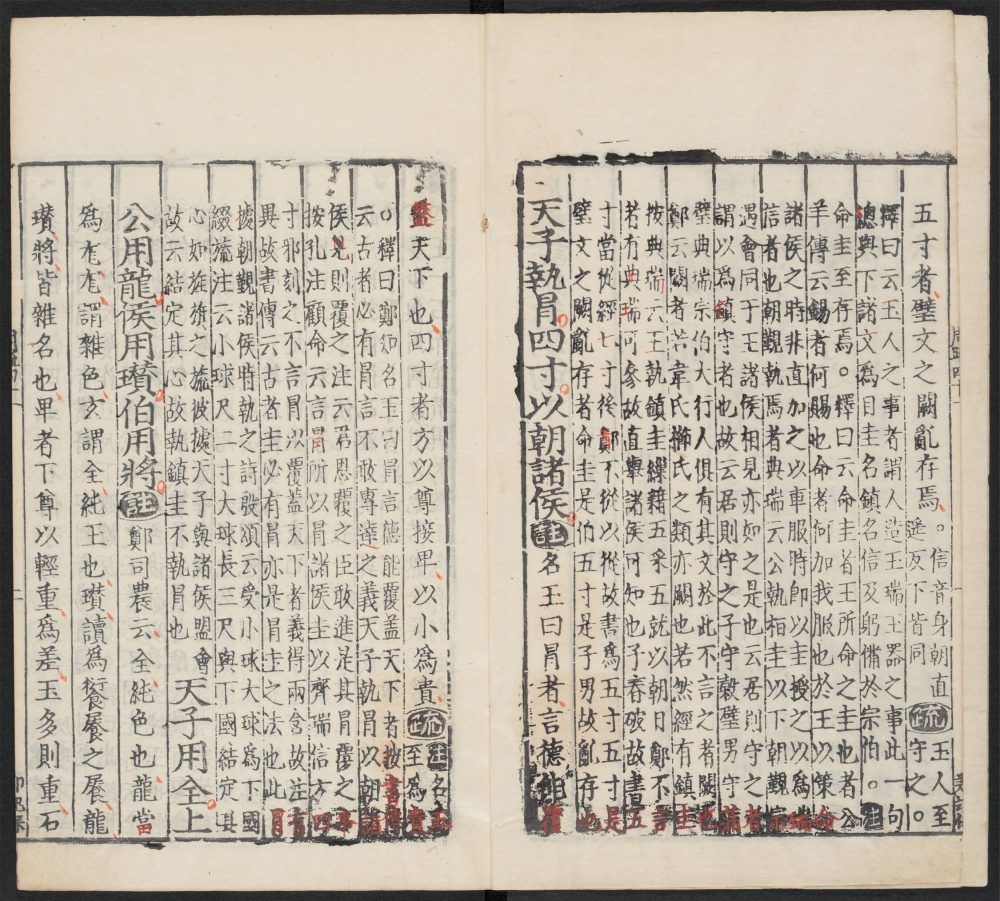 五寸者璧文之闕亂存焉。信音身朝直遥反下皆同疏玉人至守之。
釋曰云玉人之事者謂人造玉瑞玉器之事此一句
總與下諸文爲目圭名鎮名信及躬備於宗伯。注
命圭至存焉。釋曰云命圭者王所命之圭也者公
羊傳云錫者何賜也命者何加我服也於王以策命
諸侯之時非直加之以車服時即以圭授之以爲瑞
信者也朝覲執焉者典瑞云公執桓圭以下朝覲宗
遇會同于王諸侯相見亦如之是也云居則守之者
謂以爲鎮守者也故云居則守之子守穀璧男守蒲
璧典瑞宗伯大行人俱有其文於此不言之者闕也
鄭云闕者若韋氏櫛氏之類亦闕也若然經有鎮圭
按典瑞云王執鎮圭繅藉五采五就以朝日鄭不言
者有典瑞可參故直舉諸侯可知也子春破故書五
寸當從經七寸後鄭不從以從故書爲五寸故五寸是
璧文之闕亂存者命圭是伯五寸是子男故亂存也
天子執冒四寸以朝諸侯註名玉曰冒者言德能覆
蓋天下也四寸者方以尊接卑以小爲貴疏注名玉至爲貴
。釋曰鄭知名玉曰冒言德能覆蓋天下者按書傳
云古者必有冒言不敢專達之義天子執冒以朝諸
侯見則覆之注云君恩覆之臣敢進是其冒覆之事
按孔注顧命云言冒所以冒諸侯圭以齊瑞信方四
寸邪刻之不言冒以覆蓋天下者義得兩含故注有
異故書傳云古者圭必有冒亦是冒圭之法也此冒
據朝覲諸侯時執之詩殷頌云受小球大球爲下國
綴旒注云小球尺二寸大球長三尺與下國結定其
心如旌旗之旒彼據天子與諸侯盟會
故云結定其心故執鎮圭不執冒也天子用全上
公用龍侯用瓚伯用將註鄭司農云全純色也龍當
爲尨尨謂雜色玄謂全純玉也瓚讀爲餐屨之屨龍
瓚將皆雜名也卑者下尊以輕重爲差玉多則重石